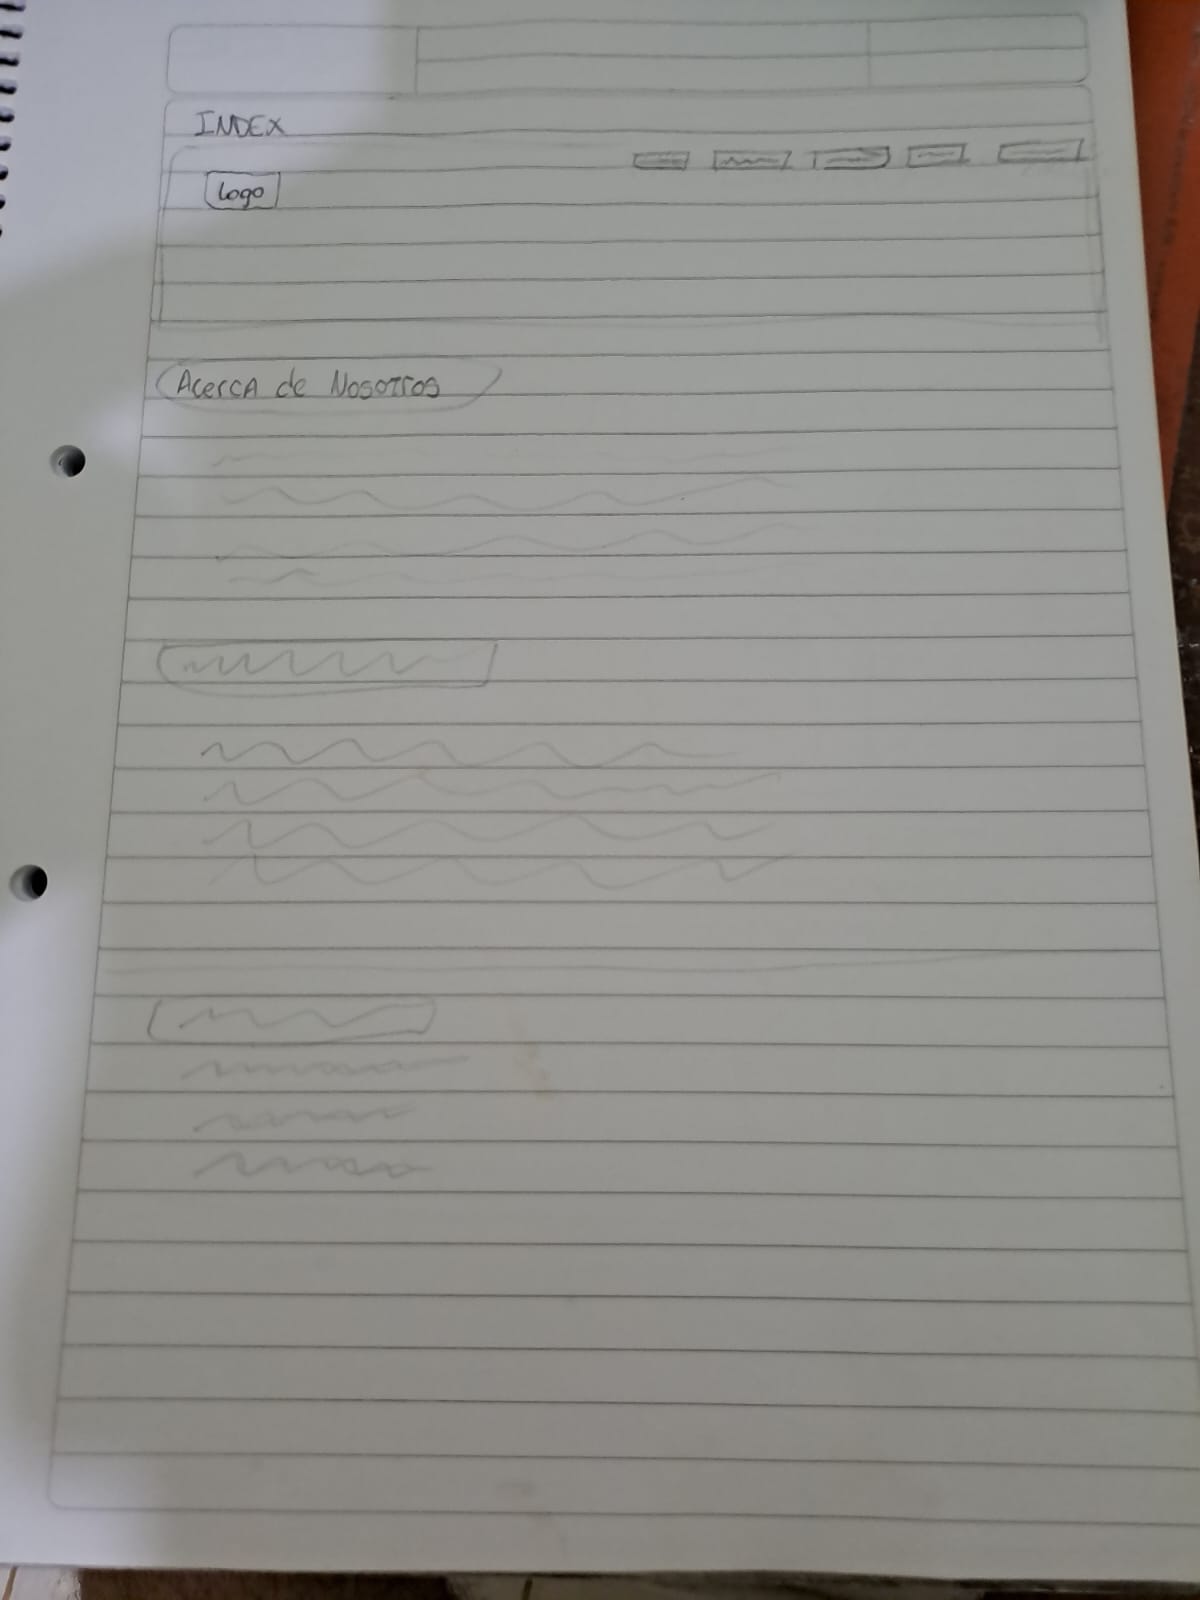 INDEX
Logo
Acerca de Nosotros